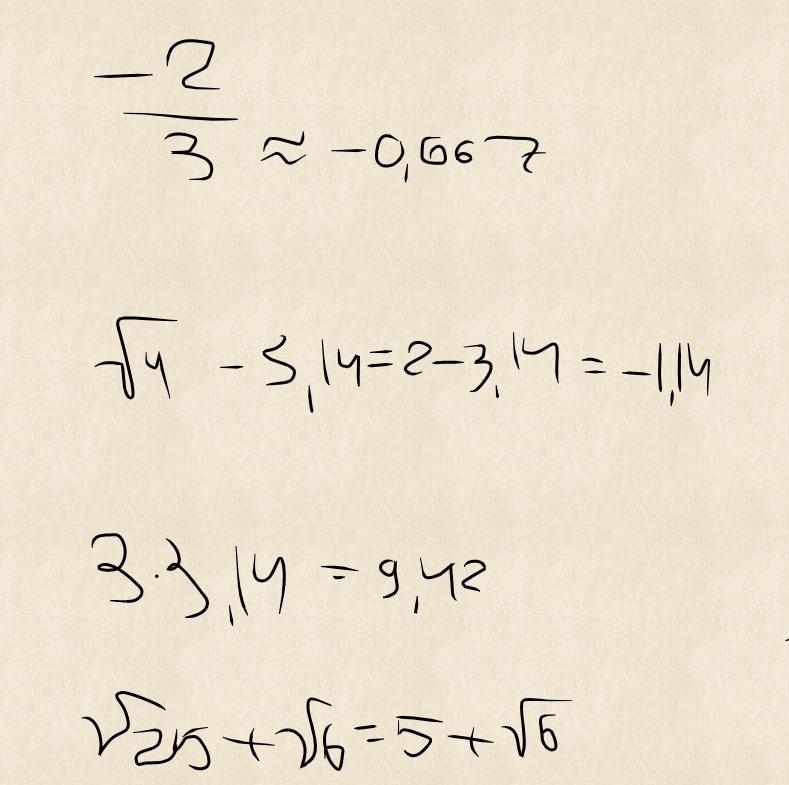 −2/3 ≈ −0,667
√4 − 3,14 = 2 − 3,14 = −1,14
3·3,14 = 9,42
√25 + √6 = 5 + √6